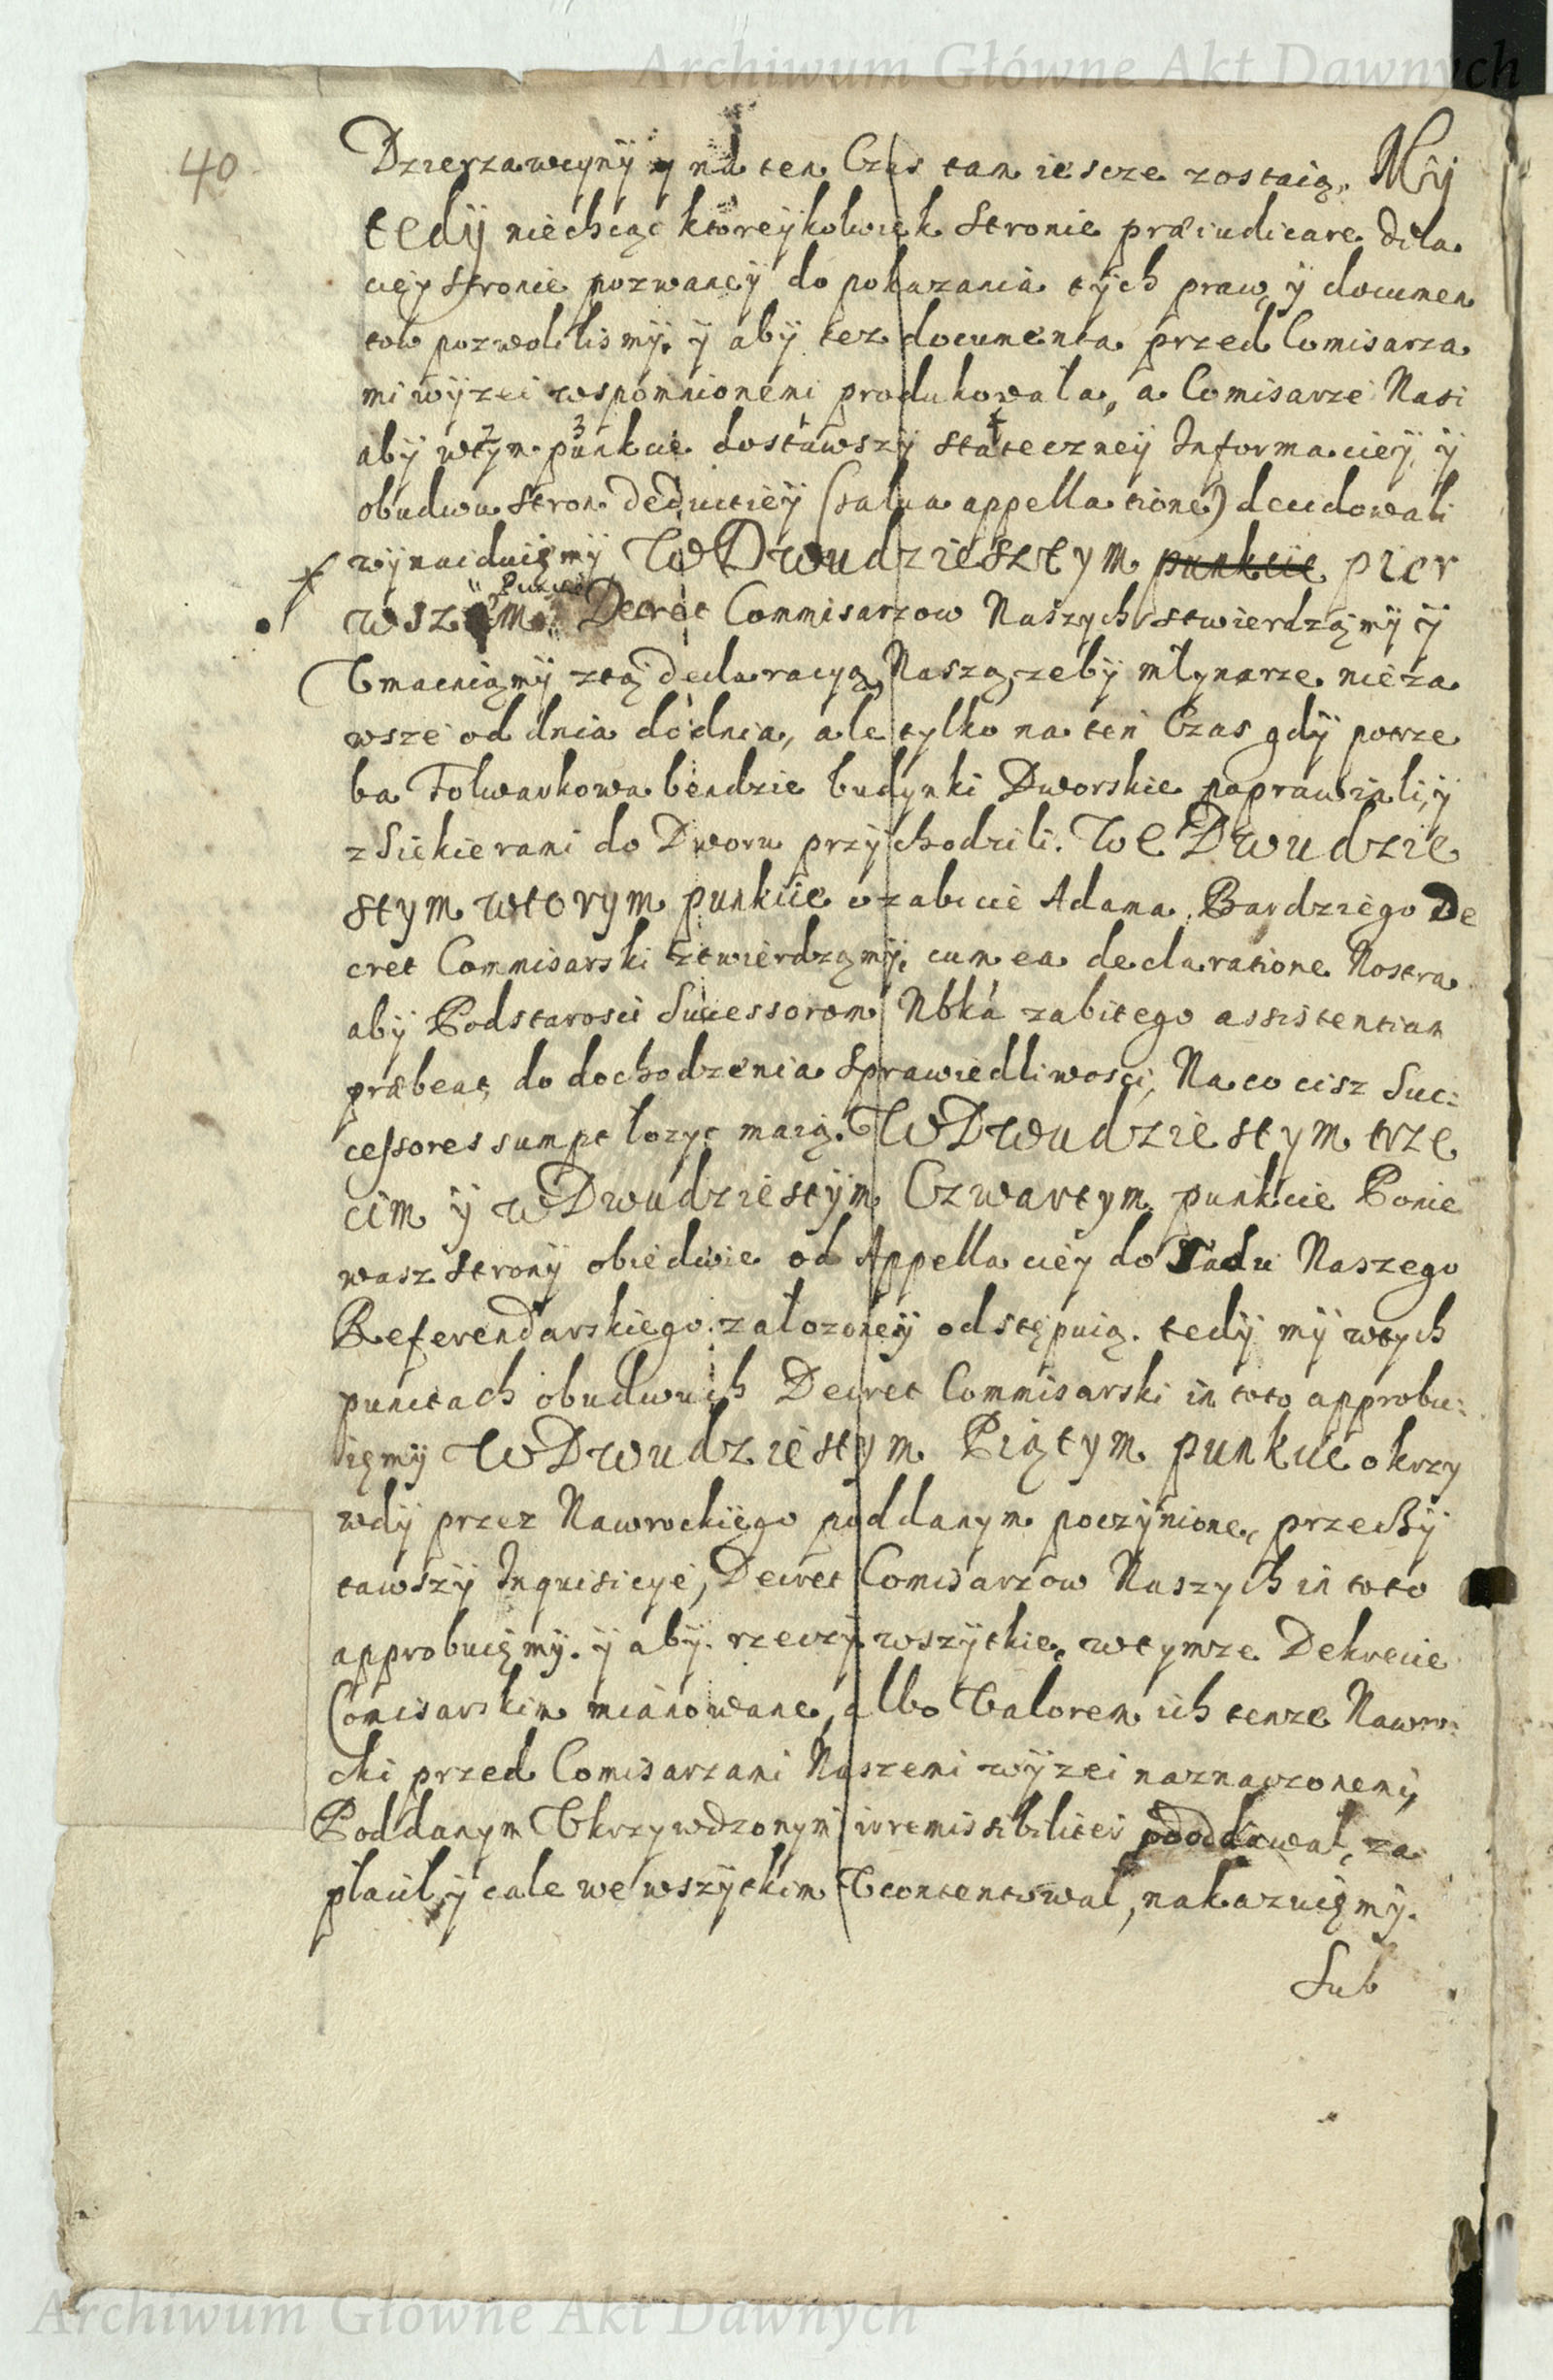 Archiwum Główne Akt Dawnych
40
Dzierzawcynÿ y na ten Czas tam iescze zostaią. Mÿ
tedÿ niechcąc ktoreÿkolwiek Stronie præiudicare dila
cięy Stronie pozwaneÿ do pokazania tÿch praw ÿ documen
tow pozwolilismÿ. ÿ abÿ tez documenta przed Comisarza
mi wÿzei wspomnionemi produkowała, a Comisarze Nasi
abÿ wtym punkcie dostawszÿ stateczneÿ Informacieÿ ÿ
obudwu Stron deductieÿ (salua appellatione) decidowali
wÿnaiduięmÿ W Dwudziesztym punkcie pier
wszym Punkcie Decret Commisarzow Naszych stwierdzamÿ ÿ
Vmacniąmÿ ztą declaracyą Naszą, zebÿ młynarze nieza
wsze od dnia do dnia, ale tylko na ten Czas gdÿ potrze
ba Folwarkowa bendzie budynki Dworskie poprawiali, ÿ
z Siekierami do Dworu przÿchodzili. We Dwudzie
stym wtorym punkcie o zabicie Adama Bardziego De
cret Commisarski ztwierdzamÿ, cum ea declaratione Nostra
abÿ Podstarosci Sucessorom Nbka zabitego assistentiam
præbeat do dochodzenia Sprawiedliwosci, Na co cisz Suc:
cessores sumpt łozyc maią. W Dwudziestym trze
cim ÿ w Dwudziestÿm Czwartym punkcie Ponie
wasz Stronÿ obiedwie od Appellacieÿ do Sadu Naszego
Referendarskiego załozoneÿ odstępuią. tedÿ mÿ wtych
punctach obudwuch Decret Commisarski in toto approbu:
ięmÿ W Dwudziestym Piątym punkcie o krzy
wdÿ przez Nawrockiego poddanym poczÿnione, przeczÿ
tawszÿ Inquisicye, Decret Comisarzow Naszych in toto
approbuięmÿ. ÿ abÿ rzeczÿ wszÿtkie wtymze Dekrecie
Comisarskim mianowane, albo Valorem ich tenze Nawro:
cki przed Comisarzami Naszemi wÿzei naznaczonemi,
Poddanym Vkrzywdzonym irremissibiliter pooddawał, za
płacił, ÿ cale we wszÿtkim Vcontentował, nakazuięmÿ.
Sub
Archiwum Główne Akt Dawnych